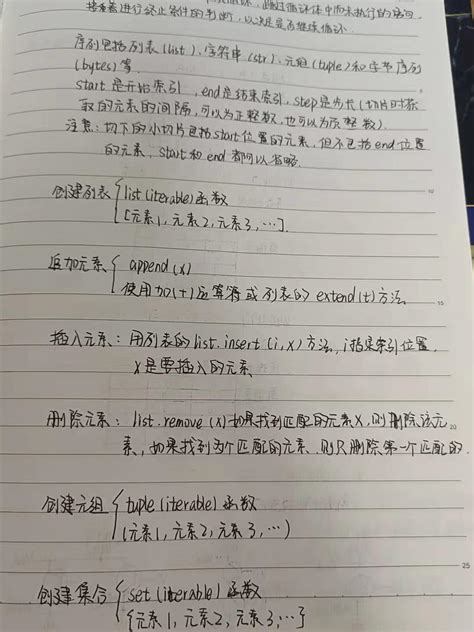 接着著进行终止条件的判断,以决定是否继续循环.
序列包括列表(list)、字符串(str)、元组(tuple)和字节序列
(bytes)等.
start是开始索引,end是结束索引,step是步长(切片时获
取的元素的间隔,可以为正整数,也可以为负整数).
注意:切下的小切片包括start位置的元素,但不包括end位置
的元素,start和end都可以省略.
10
创建列表{list(iterable)函数
[元素1,元素2,元素3,…].
追加元素{append(x)
使用加(+)运算符或列表的extend(t)方法
15
插入元素:用列表的list.insert(i,x)方法,i指定索引位置,
x是要插入的元素
删除元素:list.remove(x)如果找到匹配的元素x,则删除该元
20
素,如果找到两个匹配的元素,则只删除第一个匹配的.
创建元组{tuple(iterable)函数
(元素1,元素2,元素3,…)
25
创建集合{set(iterable)函数
{元素1,元素2,元素3,…}